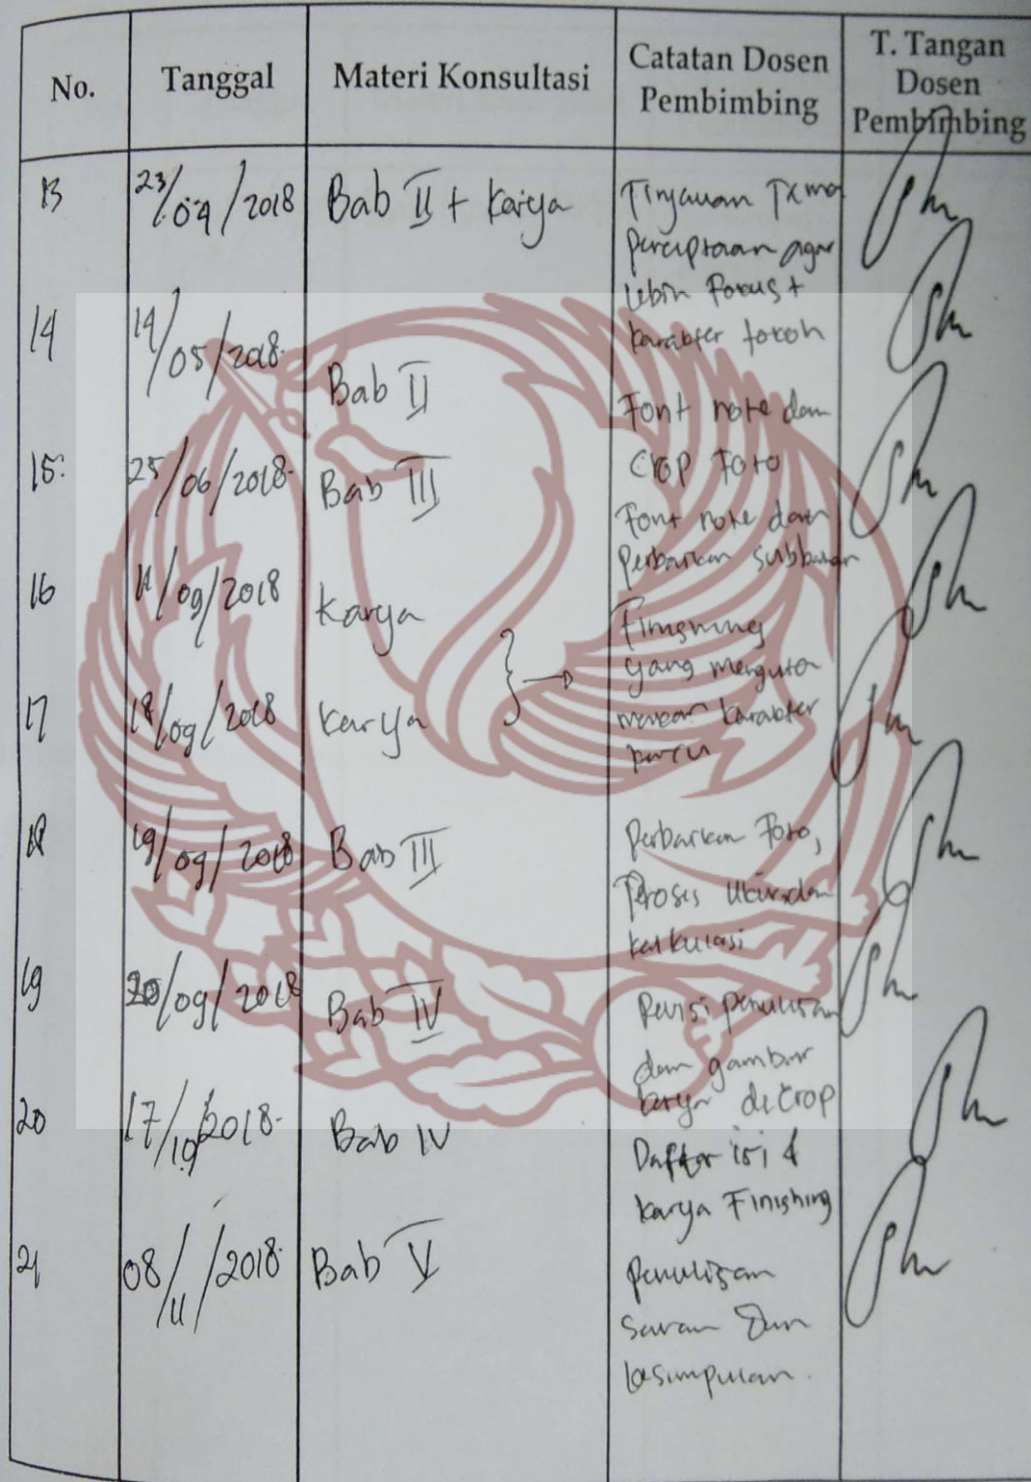 No. Tanggal Materi Konsultasi Catatan Dosen Pembimbing T. Tangan Dosen Pembimbing
13 23/04/2018 Bab II + Karya Tinjauan Tema
penciptaan agar
lebih Fokus +
14 14/05/2018 karakter tokoh
Bab II Font note dan
15. 25/06/2018 Bab III Crop Foto
Font note dan
perbaikan subbahan
16 11/09/2018 Karya Finishing
yang menguta
17 18/09/2018 Karya makan karakter
kayu
18 19/09/2018 Bab III Perbaikan Foto,
Proses Ukir dan
kalkulasi
19 20/09/2018 Bab IV Revisi penulisan
dan gambar
karya di crop
20 17/10/2018 Bab IV Daftar isi &
karya Finishing
21 08/11/2018 Bab V penulisan
saran Dan
kesimpulan.